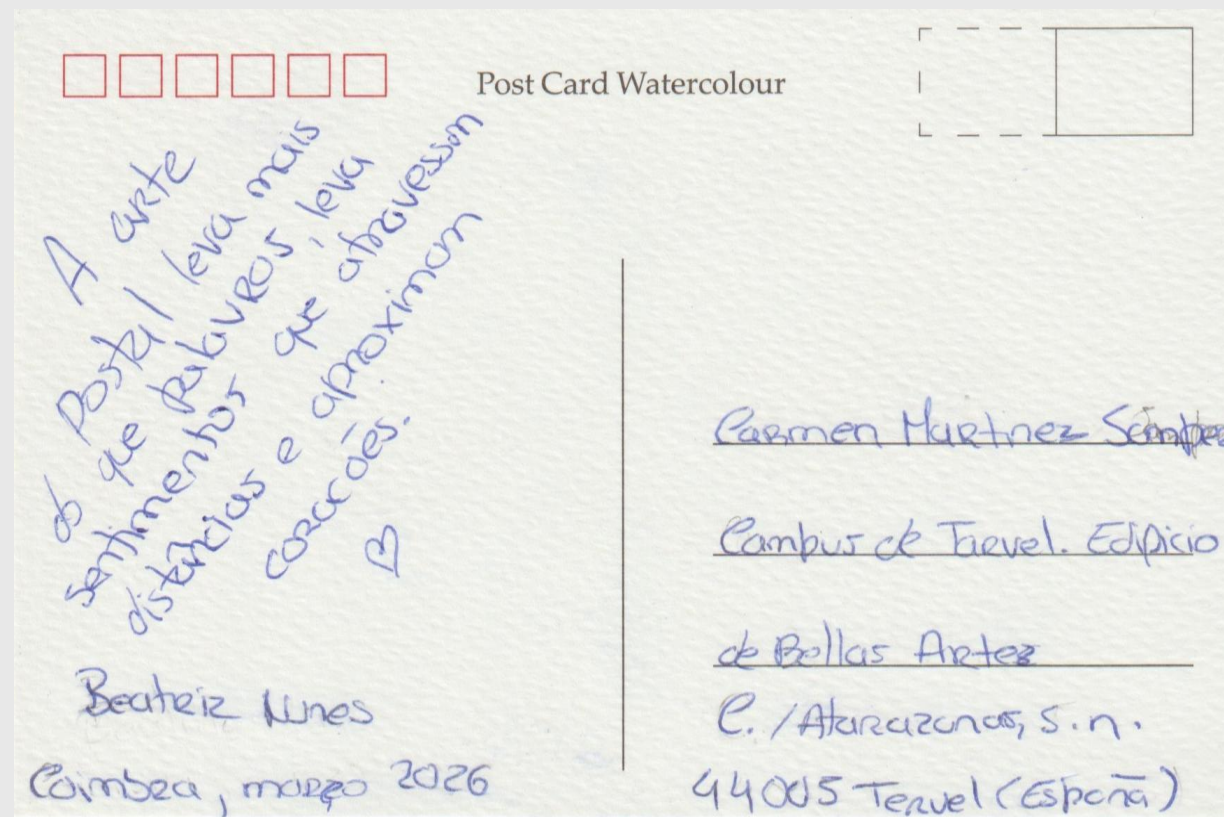 Post Card Watercolour
A arte
Postal leva mais
do que palavras, leva
sentimentos que atravessam
distâncias e aproximam
coracões.
♡
Beatriz Nunes
Coimbra, março 2026
Carmen Martinez
Campus de Teruel. Edificio
de Bellas Artes
C./Atarazanas, s.n.
44005 Teruel (España)